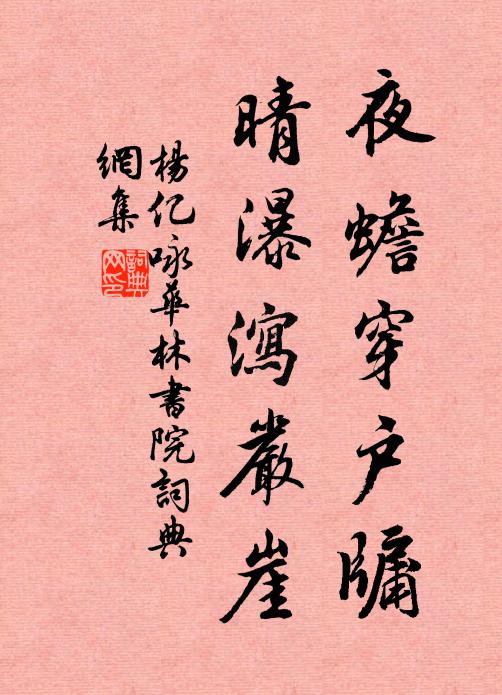 夜蟾穿戶牖
晴瀑瀉嚴崖
楊亿咏華林書院詞典
網集
詞典
网印